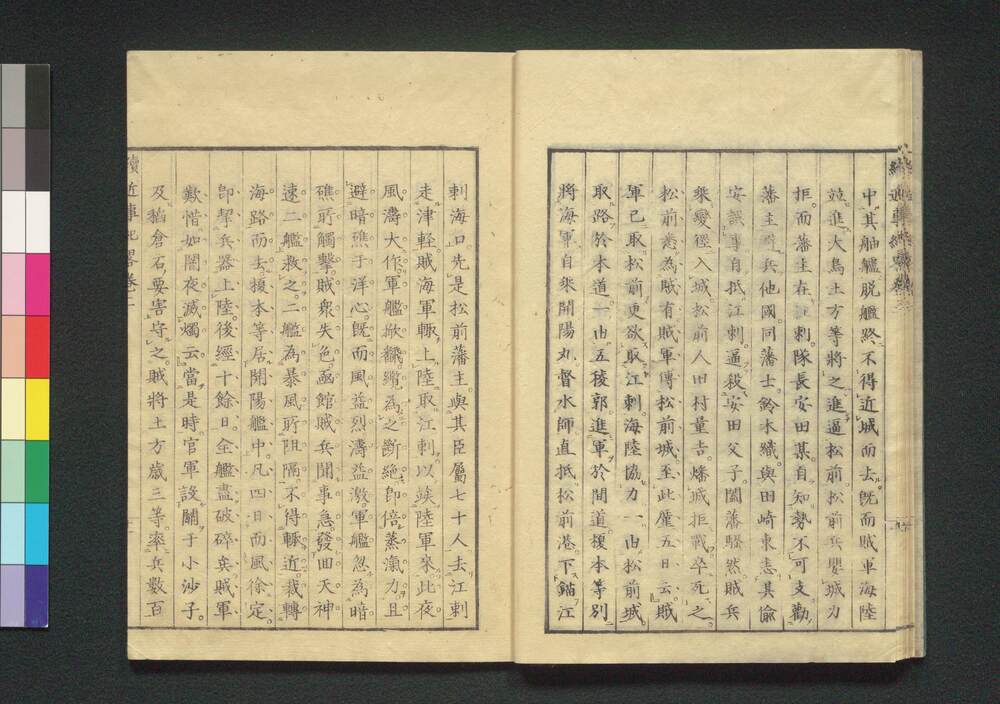 中、其舳艫脱艦路、不得近城而去。既而賊軍海陸
竝進、大鳥土方等將之進逼松前。松前兵嬰城力
拒。而藩主在江刺。隊長安田某自知勢不可支、勸
藩主 兵他國。同藩士鈴木織與田崎東恚其偷
安誤事、自抵江刺、逼殺安田父子。闔藩騷然。賊兵
乘變徑入城。松前人田村量吉燔城拒戰卒死之。
松前 為賊有。賊軍傳松前城至此厪五日云。賊
軍已取松前、更欲取江刺、海陸協力、一由松前城
取路於本道、一由五稜郭進軍於間道。榎本等別
將海軍、自乘開陽丸、督水師直抵松前港、下錨江
刺海口。先是松前藩主與其臣屬七十人去江刺
走津輕。賊海軍輙上陸、取江刺、以竢陸軍來。此夜
風濤大作、軍艦欹 纜為之斷絕。即倍蒸氣力、且
避暗礁于洋心。既而風益烈、濤益激、軍艦忽為暗
礁所觸擊、賊衆失色。函館賊兵聞事急、發回天神
速二艦救之。二艦為暴風所阻隔、不得輙近、裁轉
海路而去。榎本等居開陽艦中、凡四日而風徐定。
即挈兵器上陸。後經十餘日、全艦盡破碎矣。賊軍
歎惜、如闇夜滅燭云。當是時官軍設關于小沙子。
及 倉石、要害守之。賊將土方歲三等、率兵數百
續近事紀畧卷二